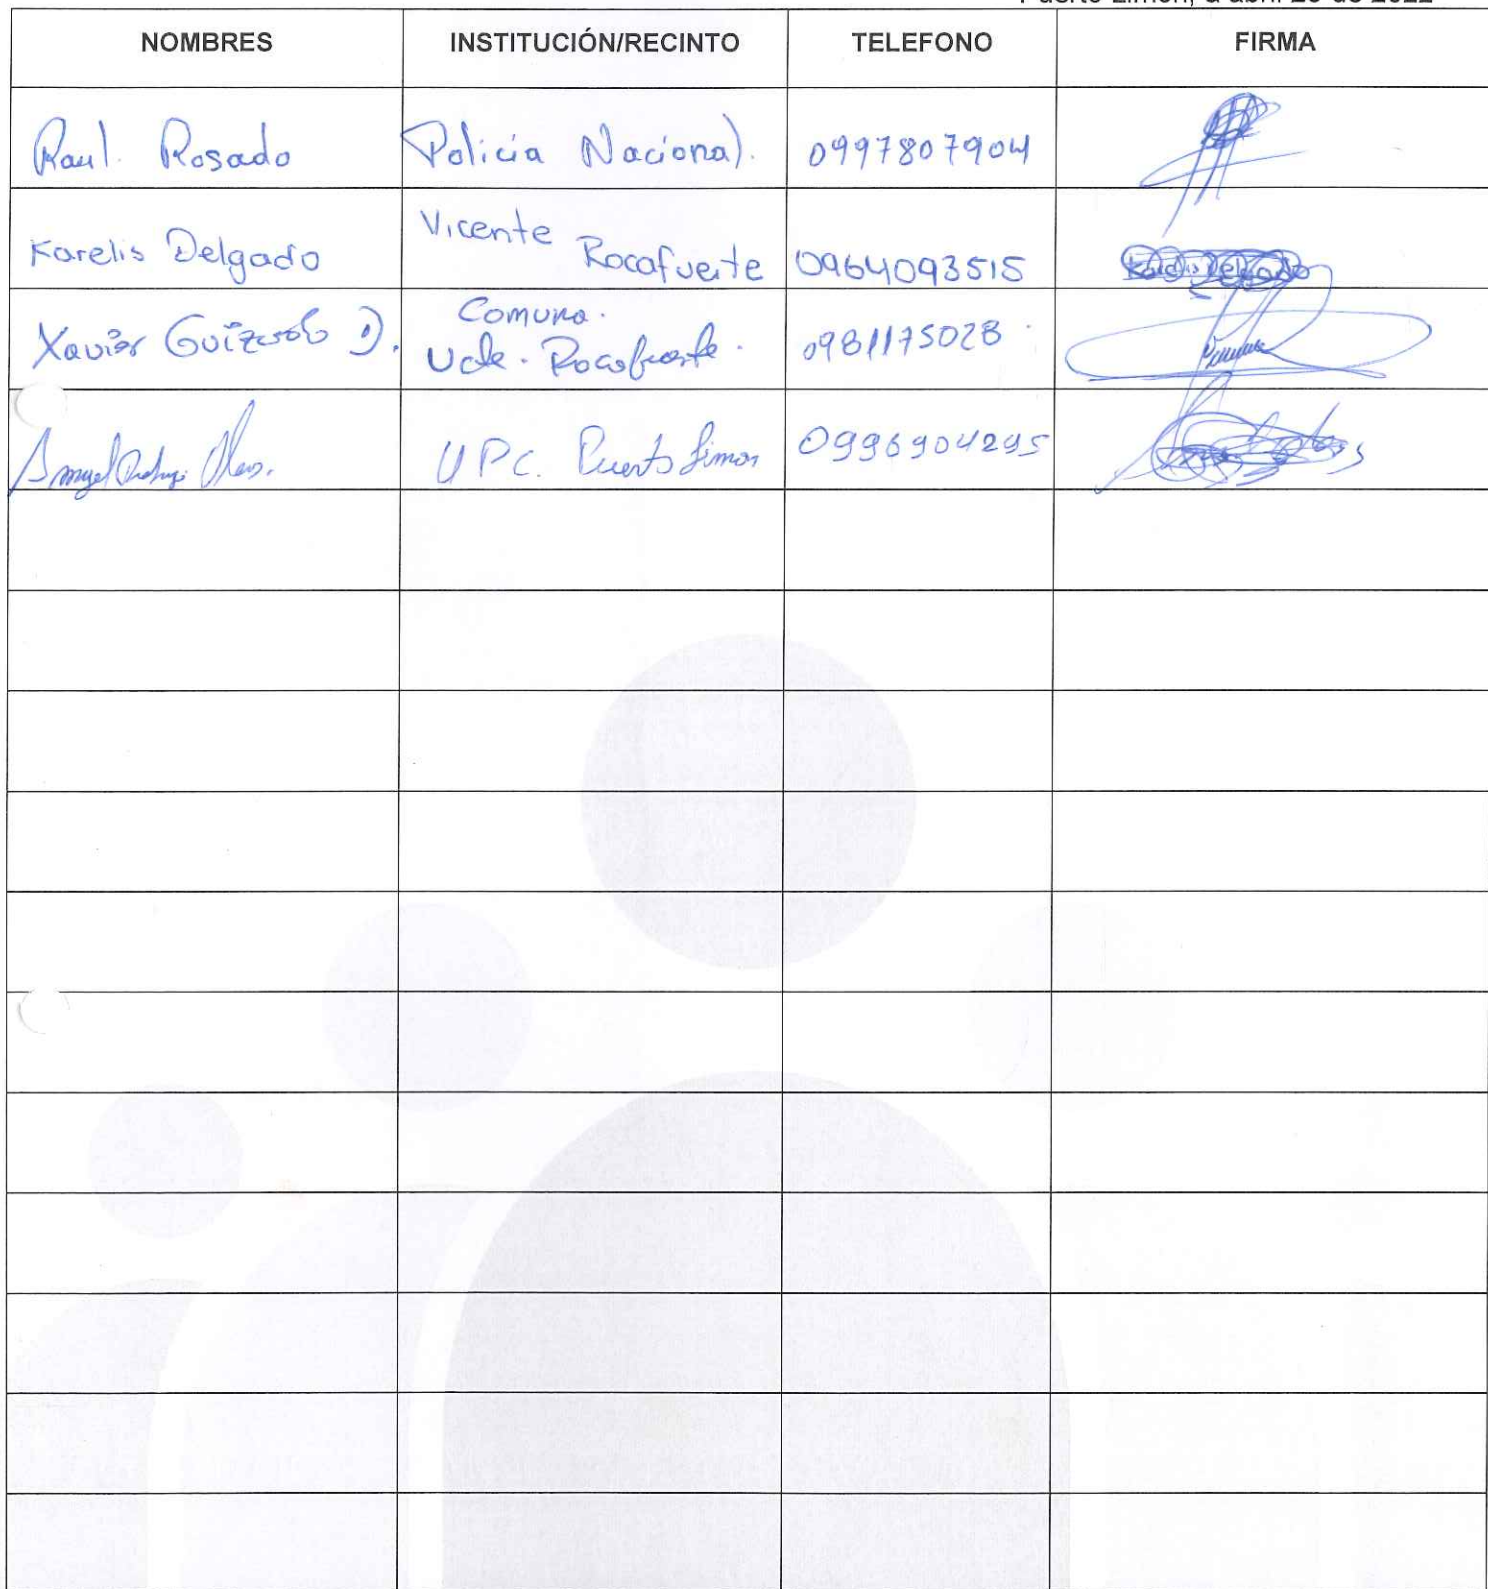 Puerto Limón, a abril de 2022
NOMBRES INSTITUCIÓN/RECINTO TELEFONO FIRMA
Raul. Rosado Policía Nacional. 0997807904
Karelis Delgado Vicente Rocafuerte 0964093515 Karelis Delgado
Xavier D. Comuna. Vcte. Rocafuerte. 0981175028
Angel UPC. Puerto Limon 0996904295